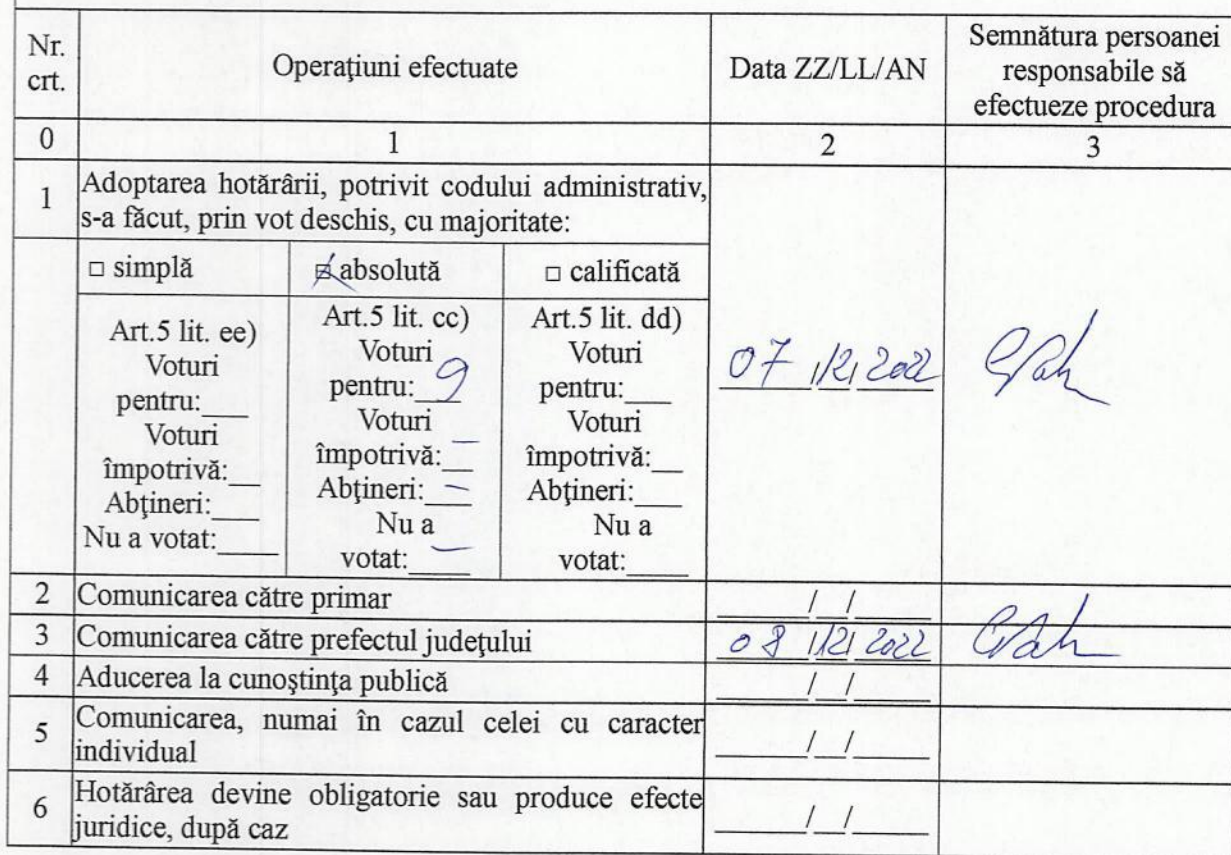 Nr. crt.
Operaţiuni efectuate
Data ZZ/LL/AN
Semnătura persoanei
responsabile să
efectueze procedura
0 1 2 3
1 Adoptarea hotărârii, potrivit codului administrativ,
s-a făcut, prin vot deschis, cu majoritate:
□ simplă
Art.5 lit. ee)
Voturi
pentru:___
Voturi
împotrivă:__
Abţineri:___
Nu a votat:____
☒ absolută
Art.5 lit. cc)
Voturi
pentru: 9
Voturi
împotrivă: –
Abţineri: –
Nu a
votat: –
□ calificată
Art.5 lit. dd)
Voturi
pentru:___
Voturi
împotrivă:__
Abţineri:___
Nu a
votat:____
07/12/2022
2 Comunicarea către primar ____/__/____
3 Comunicarea către prefectul judeţului 08/12/2022
4 Aducerea la cunoştinţa publică ____/__/____
5 Comunicarea, numai în cazul celei cu caracter
individual ____/__/____
6 Hotărârea devine obligatorie sau produce efecte
juridice, după caz ____/__/____